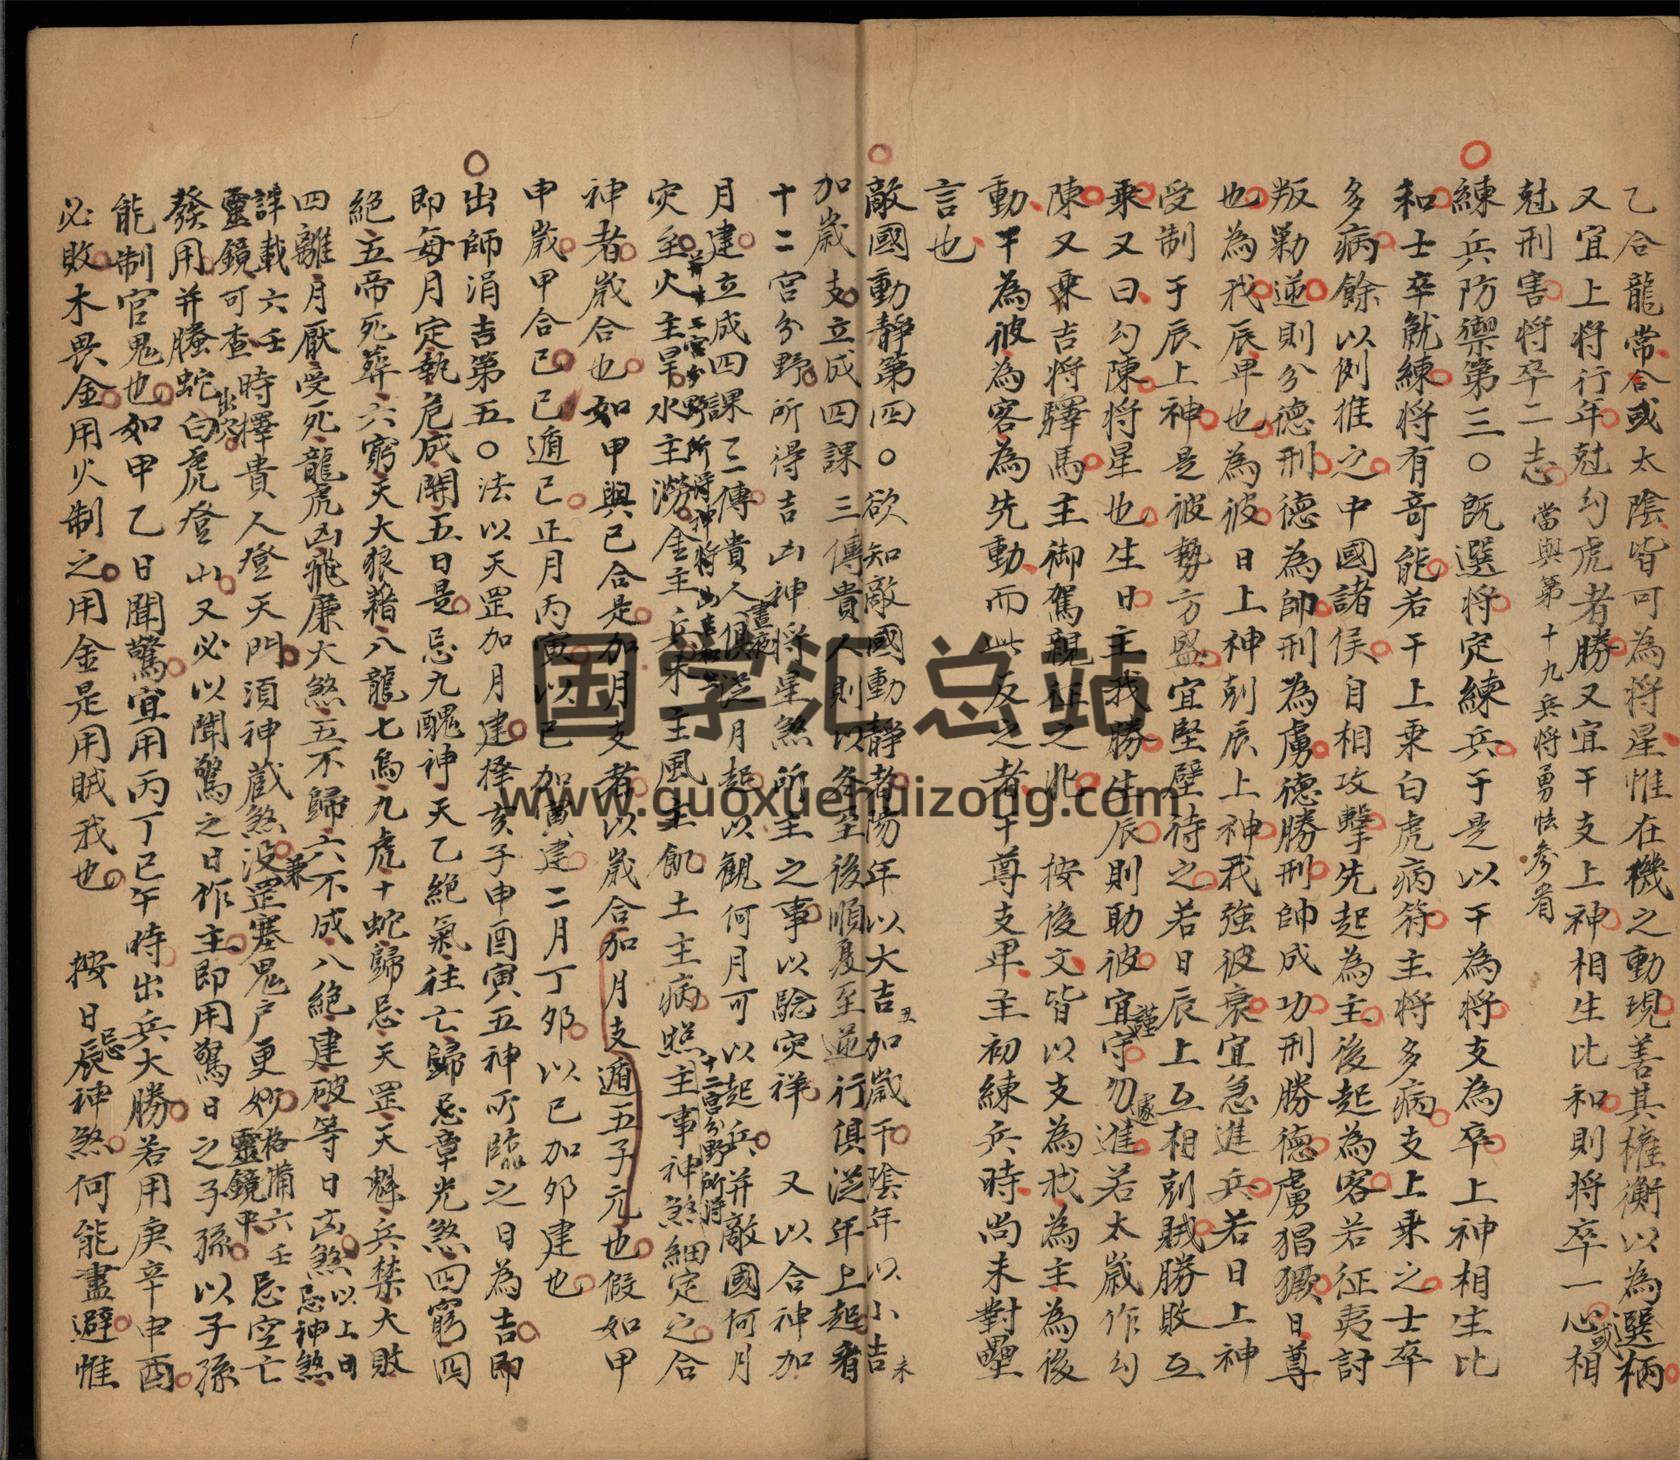 乙合龍常合或太陰皆可為將星惟在機之動現善其權衡以為選柄
又宜上將行年尅勾虎者勝又宜干支上神相生比和則將卒一心或相
尅刑害將卒二志當與第十九兵將勇怯參看
練兵防禦第三○既選將定練兵于是以干為將支為卒上神相生比
和士卒就練將有奇能若干上乗白虎病符主將多病支上乗之士卒
多病餘以例推之中國諸侯自相攻擊先起為主後起為客若征夷討
叛勦逆則分德刑德為帥刑為虜德勝刑帥成功刑勝德虜猖獗日尊
也為我辰卑也為彼日上神剋辰上神我強彼衰宜急進兵若日上神
受制于辰上神是彼勢方盛宜堅壁待之若日辰上互相剋賊勝敗互
乗又曰勾陳將星也生日主我勝生辰則助彼宜謹守勿遂進若太歲作勾
陳又乗吉將驛馬主御駕親征之兆 按後文皆以支為我為主為後
動干為彼為客為先動而此反之者干尊支卑主初練兵時尚未對壘
言也
敵國動靜第四○欲知敵國動靜者陽年以大吉丑加歲干陰年以小吉未
加歲支立成四課三傳貴人則以冬至後順夏至逆行俱從年上起看
十二宮分野所得吉凶神將星煞所主之事以騐灾祥 又以合神加
月建立成四課三傳貴人晝夜俱從月起以観何月可以起兵并敵國何月
灾至火主旱水主澇金主兵木主風主飢土主病照主事神煞細定之合
十二宮分野所得
神者歲合也如甲與己合是加月支者以歲合加月支遁五子元也假如甲
申歲甲合己己遁己正月丙寅以己加寅建二月丁夘以己加夘建也
出師涓吉第五○法以天罡加月建擇亥子申酉寅五神所臨之日為吉即
即每月定執危成開五日是忌九醜神天乙絕氣往亡歸忌章光煞四窮四
絕五帝死葬六窮天大狼藉八龍七鳥九虎十蛇歸忌天罡天魁兵禁大敗
四離月厭受死龍虎凶飛廉大煞五不歸六不成八絕建破等日凶煞以上日忌神煞
詳載六壬靈鏡可查時擇貴人登天門須神藏煞没兼罡塞鬼户更妙格蒲六壬靈鏡中忌空亡
發用并螣蛇白虎出穴登山又必以聞驚之日作主即用驚日之子孫以子孫
能制官鬼也如甲乙日聞驚宜用丙丁巳午時出兵大勝若用庚辛申酉
必敗木畏金用火制之用金是用賊我也 按日辰忌神煞何能盡避惟